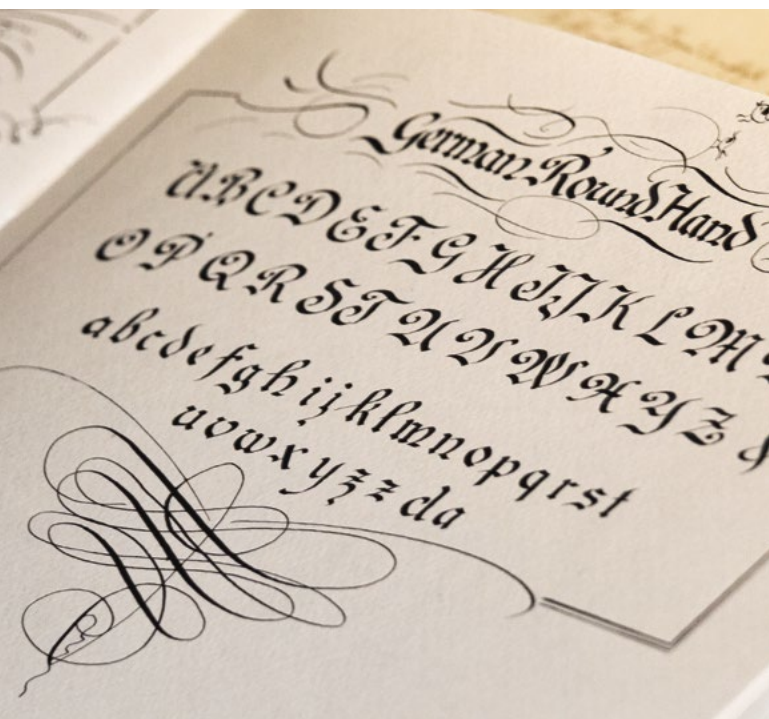 German Round Hand
A B C D E F G H I J K L M
O P Q R S T U V W X Y Z &
a b c d e f g h i j k l m n o p q r s t
u v w x y z z d a